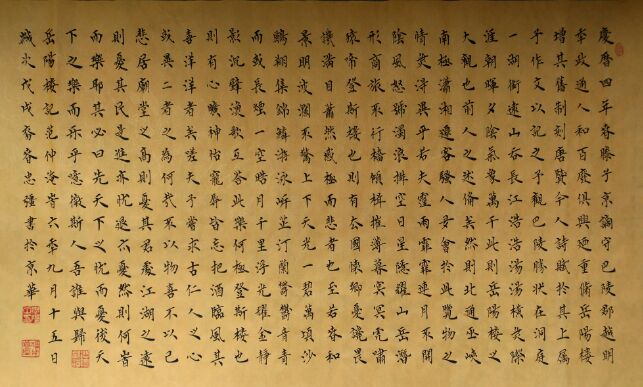 慶曆四年春滕子京謫守巴陵郡越明
年政通人和百廢俱興廼重修岳陽樓
增其舊制刻唐賢今人詩賦於其上屬
予作文以記之予觀巴陵勝狀在洞庭
一湖銜遠山吞長江浩浩湯湯橫無際
涯朝暉夕陰氣象萬千此則岳陽樓之
大觀也前人之述備矣然則北通巫峽
南極瀟湘遷客騷人多會於此覽物之
情無得異乎若夫霪雨霏霏連月不開
陰風怒號濁浪排空日星隱耀山岳潛
形商旅不行檣傾楫摧薄暮冥冥虎嘯
猿啼登斯樓也則有去國懷鄉憂讒畏
譏滿目蕭然感極而悲者也至若春和
景明波瀾不驚上下天光一碧萬頃沙
鷗翔集錦鱗游泳岸芷汀蘭鬱鬱青青
而或長煙一空皓月千里浮光耀金靜
影沉璧漁歌互答此樂何極登斯樓也
則有心曠神怡寵辱皆忘把酒臨風其
喜洋洋者矣嗟夫予嘗求古仁人之心
或異二者之為何哉不以物喜不以己
悲居廟堂之高則憂其君處江湖之遠
則憂其民是進亦憂退亦憂然則何時
而樂耶其必曰先天下之憂而憂後天
下之樂而樂乎噫微斯人吾誰與歸
岳陽樓記范仲淹時六年九月十五日
歲次戊戌春忠強書於京華